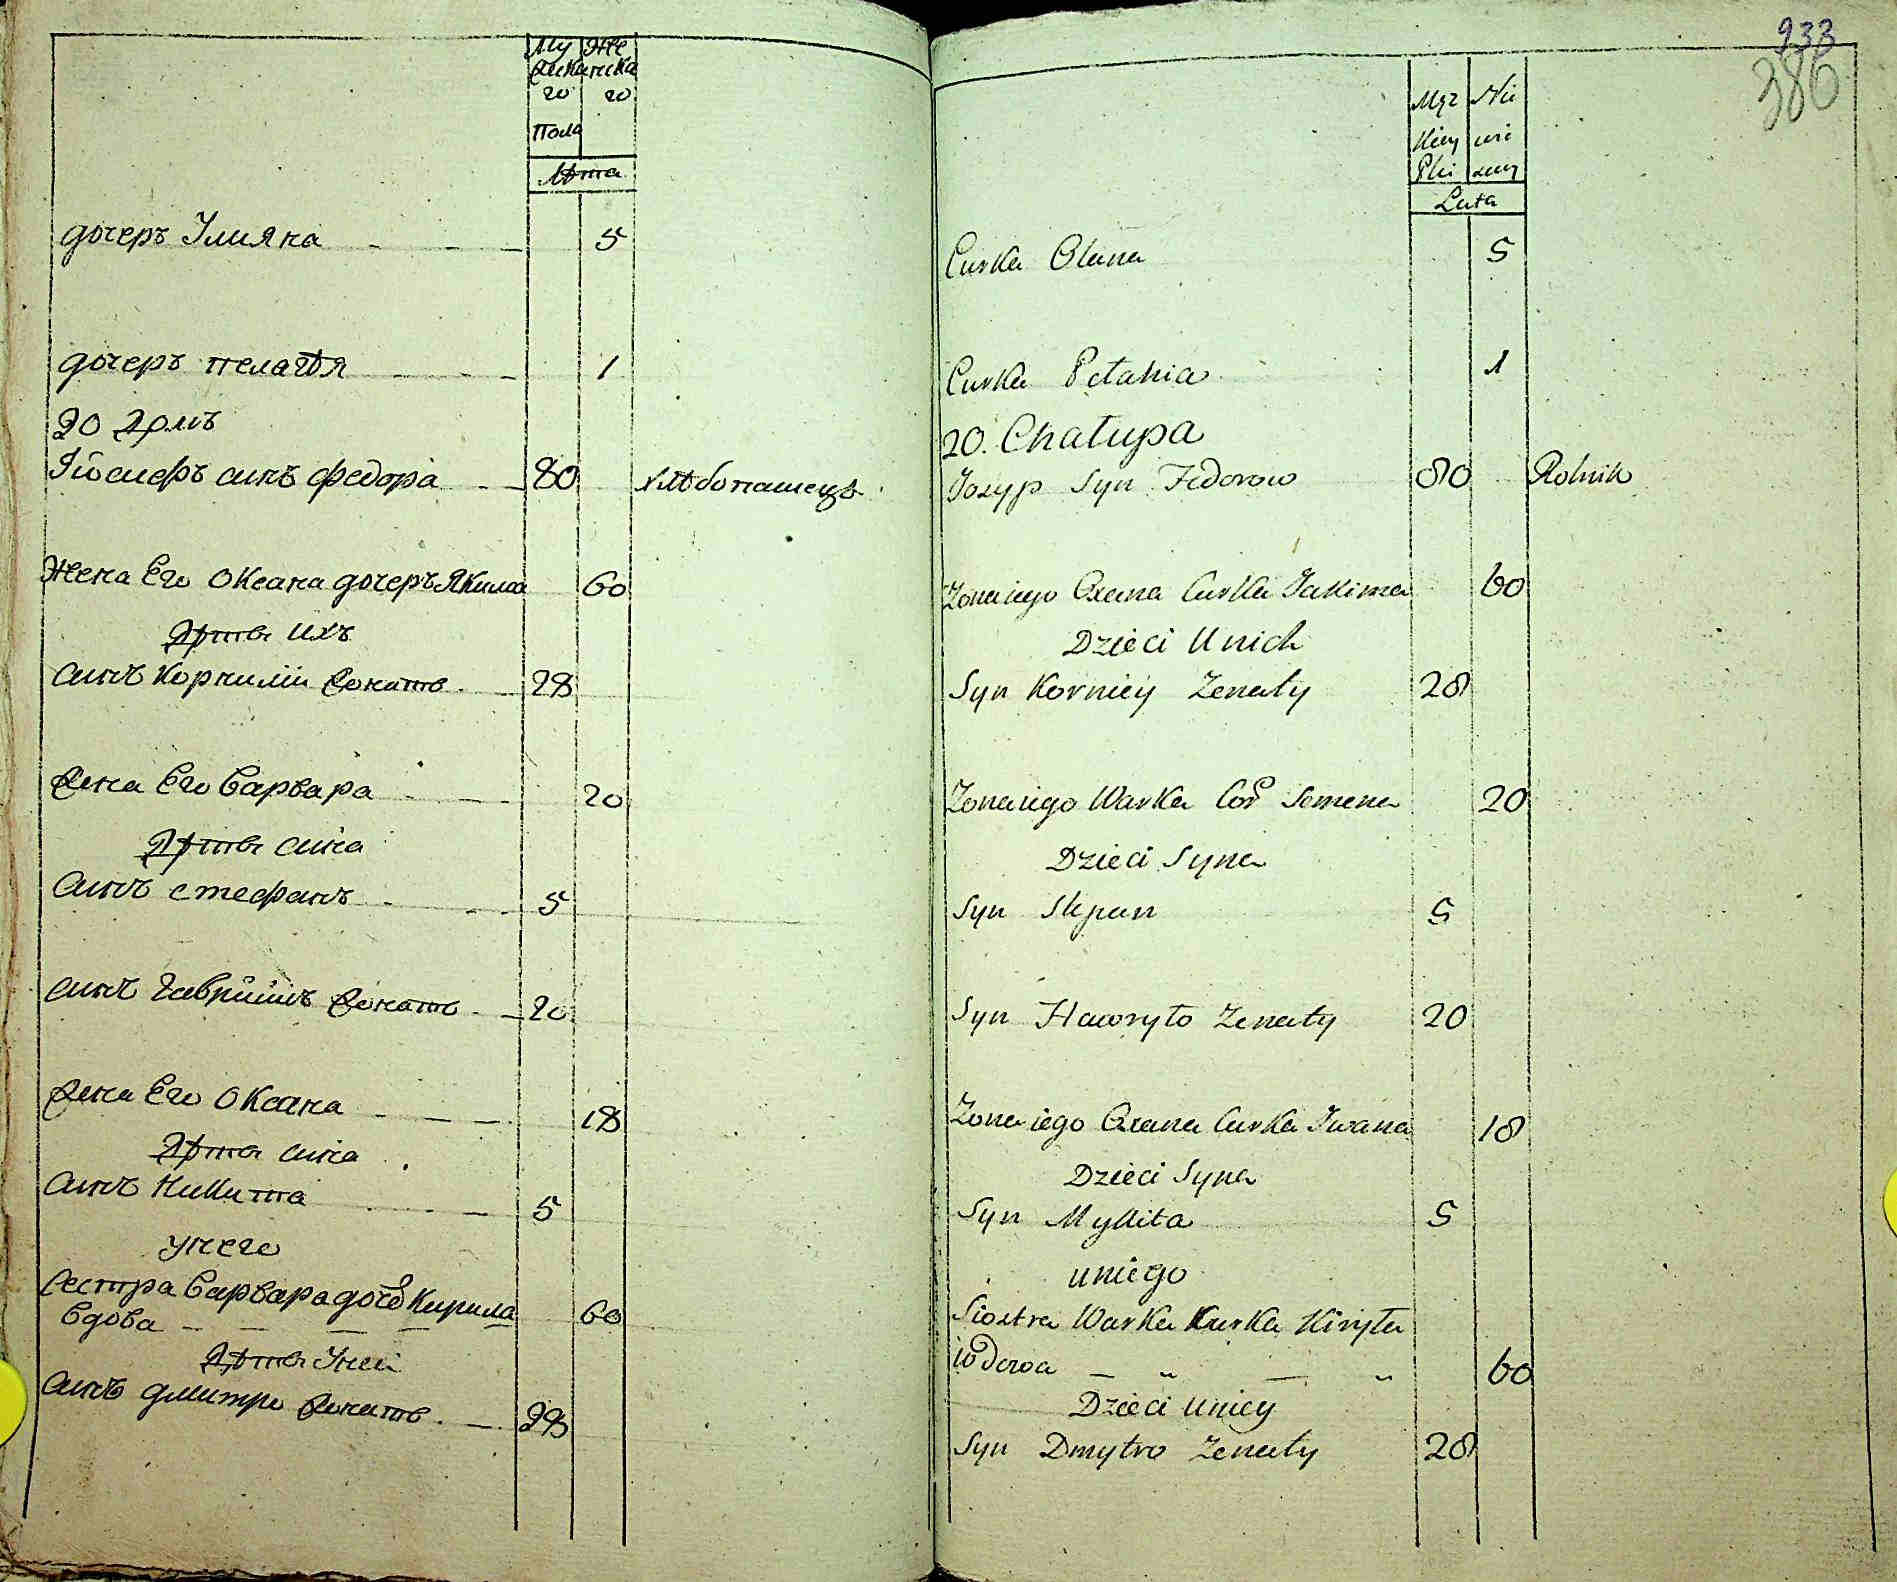 Му Же
жеска нска
го го
Пола
Лѣта
дочеръ Улияна 5
дочеръ пелагѣя 1
20 Домъ
Іосифъ синъ федора 80 хлѣбопашецъ
Жена Его Оксана дочеръ Якима 60
Дѣти ихъ
синъ Корнилій женатъ 28
жена Его Варвара 20
Дѣти сина
синъ стефанъ 5
синъ гавріилъ женатъ 20
жена Его Оксана 18
Дѣти сина
синъ Никита 5
унего
сестра Варвара дочъ Кирила
вдова 60
Дѣти Уней
синъ дмитро женатъ 28
933
386
Męz Nie
kiey wie
Płci sciey
Lata
Curka Olana 5
Curka Pelahia 1
20. Chałupa
Iozyp Syn Fedorow 80 Rolnik
Zona iego Oxana Curka Jakima 60
Dzieci Unich
Syn Korniey Zenaty 28
Zona iego Warka Cor Semena 20
Dzieci Syna
Syn Stepan 5
Syn Hawryło Zenaty 20
Zona iego Oxana Curka Iwana 18
Dzieci Syna
Syn Mykita 5
uniego
Siostra Warka Kurka Kiryła
Wdowa 60
Dzieci Uniey
Syn Dmytro Zenaty 28